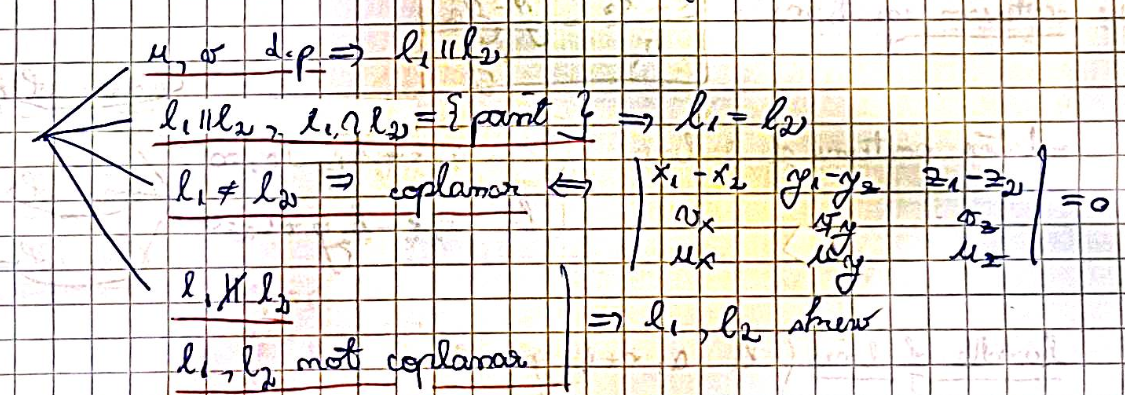 u, v d.p ⇒ l₁ ∥ l₂
l₁ ∥ l₂, l₁ ∩ l₂ = { point } ⇒ l₁ = l₂
l₁ ≠ l₂ ⇒ coplanar ⇔ | x₁-x₂ y₁-y₂ z₁-z₂ | = 0
vₓ v_y v_z
uₓ u_y u_z
l₁ ∦ l₂
l₁, l₂ not coplanar | ⇒ l₁, l₂ skew